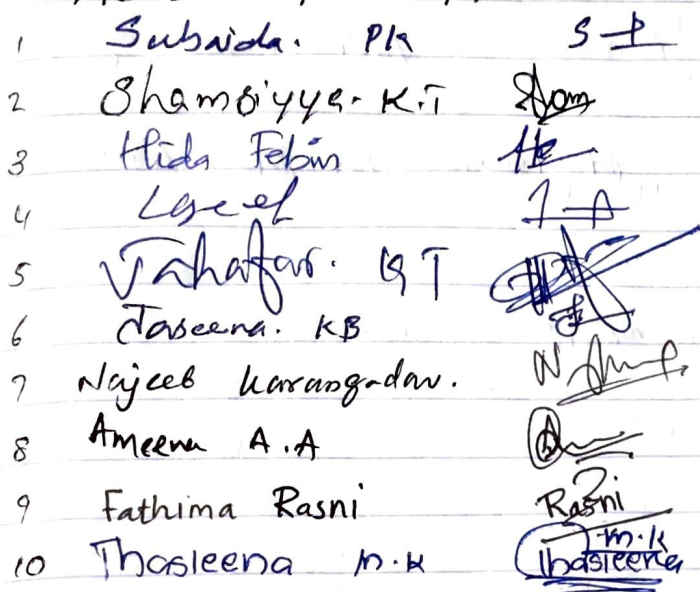 1 Subaida. PK S P
2 Shamsiyya. K.T Sham
3 Hida Febin
4 1-A
5 Jahafar. KT
6 Jaseena. KB
7 Najeeb Karangadan.
8 Ameena A.A
9 Fathima Rasni Rasni
10 Thasleena M.K Thasleena M.K